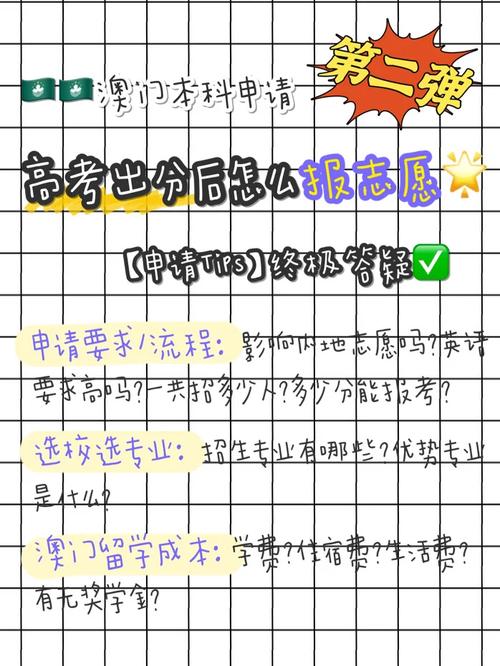 第二弹
🇲🇴🇲🇴澳门本科申请
高考出分后怎么报志愿🌟
【申请Tips】终极答疑✅
申请要求/流程:影响内地志愿吗?英语
要求高吗?一共招多少人?多少分能报考?
选校选专业:招生专业有哪些?优势专业
是什么?
澳门留学成本:学费?住宿费?生活费?
有无奖学金?